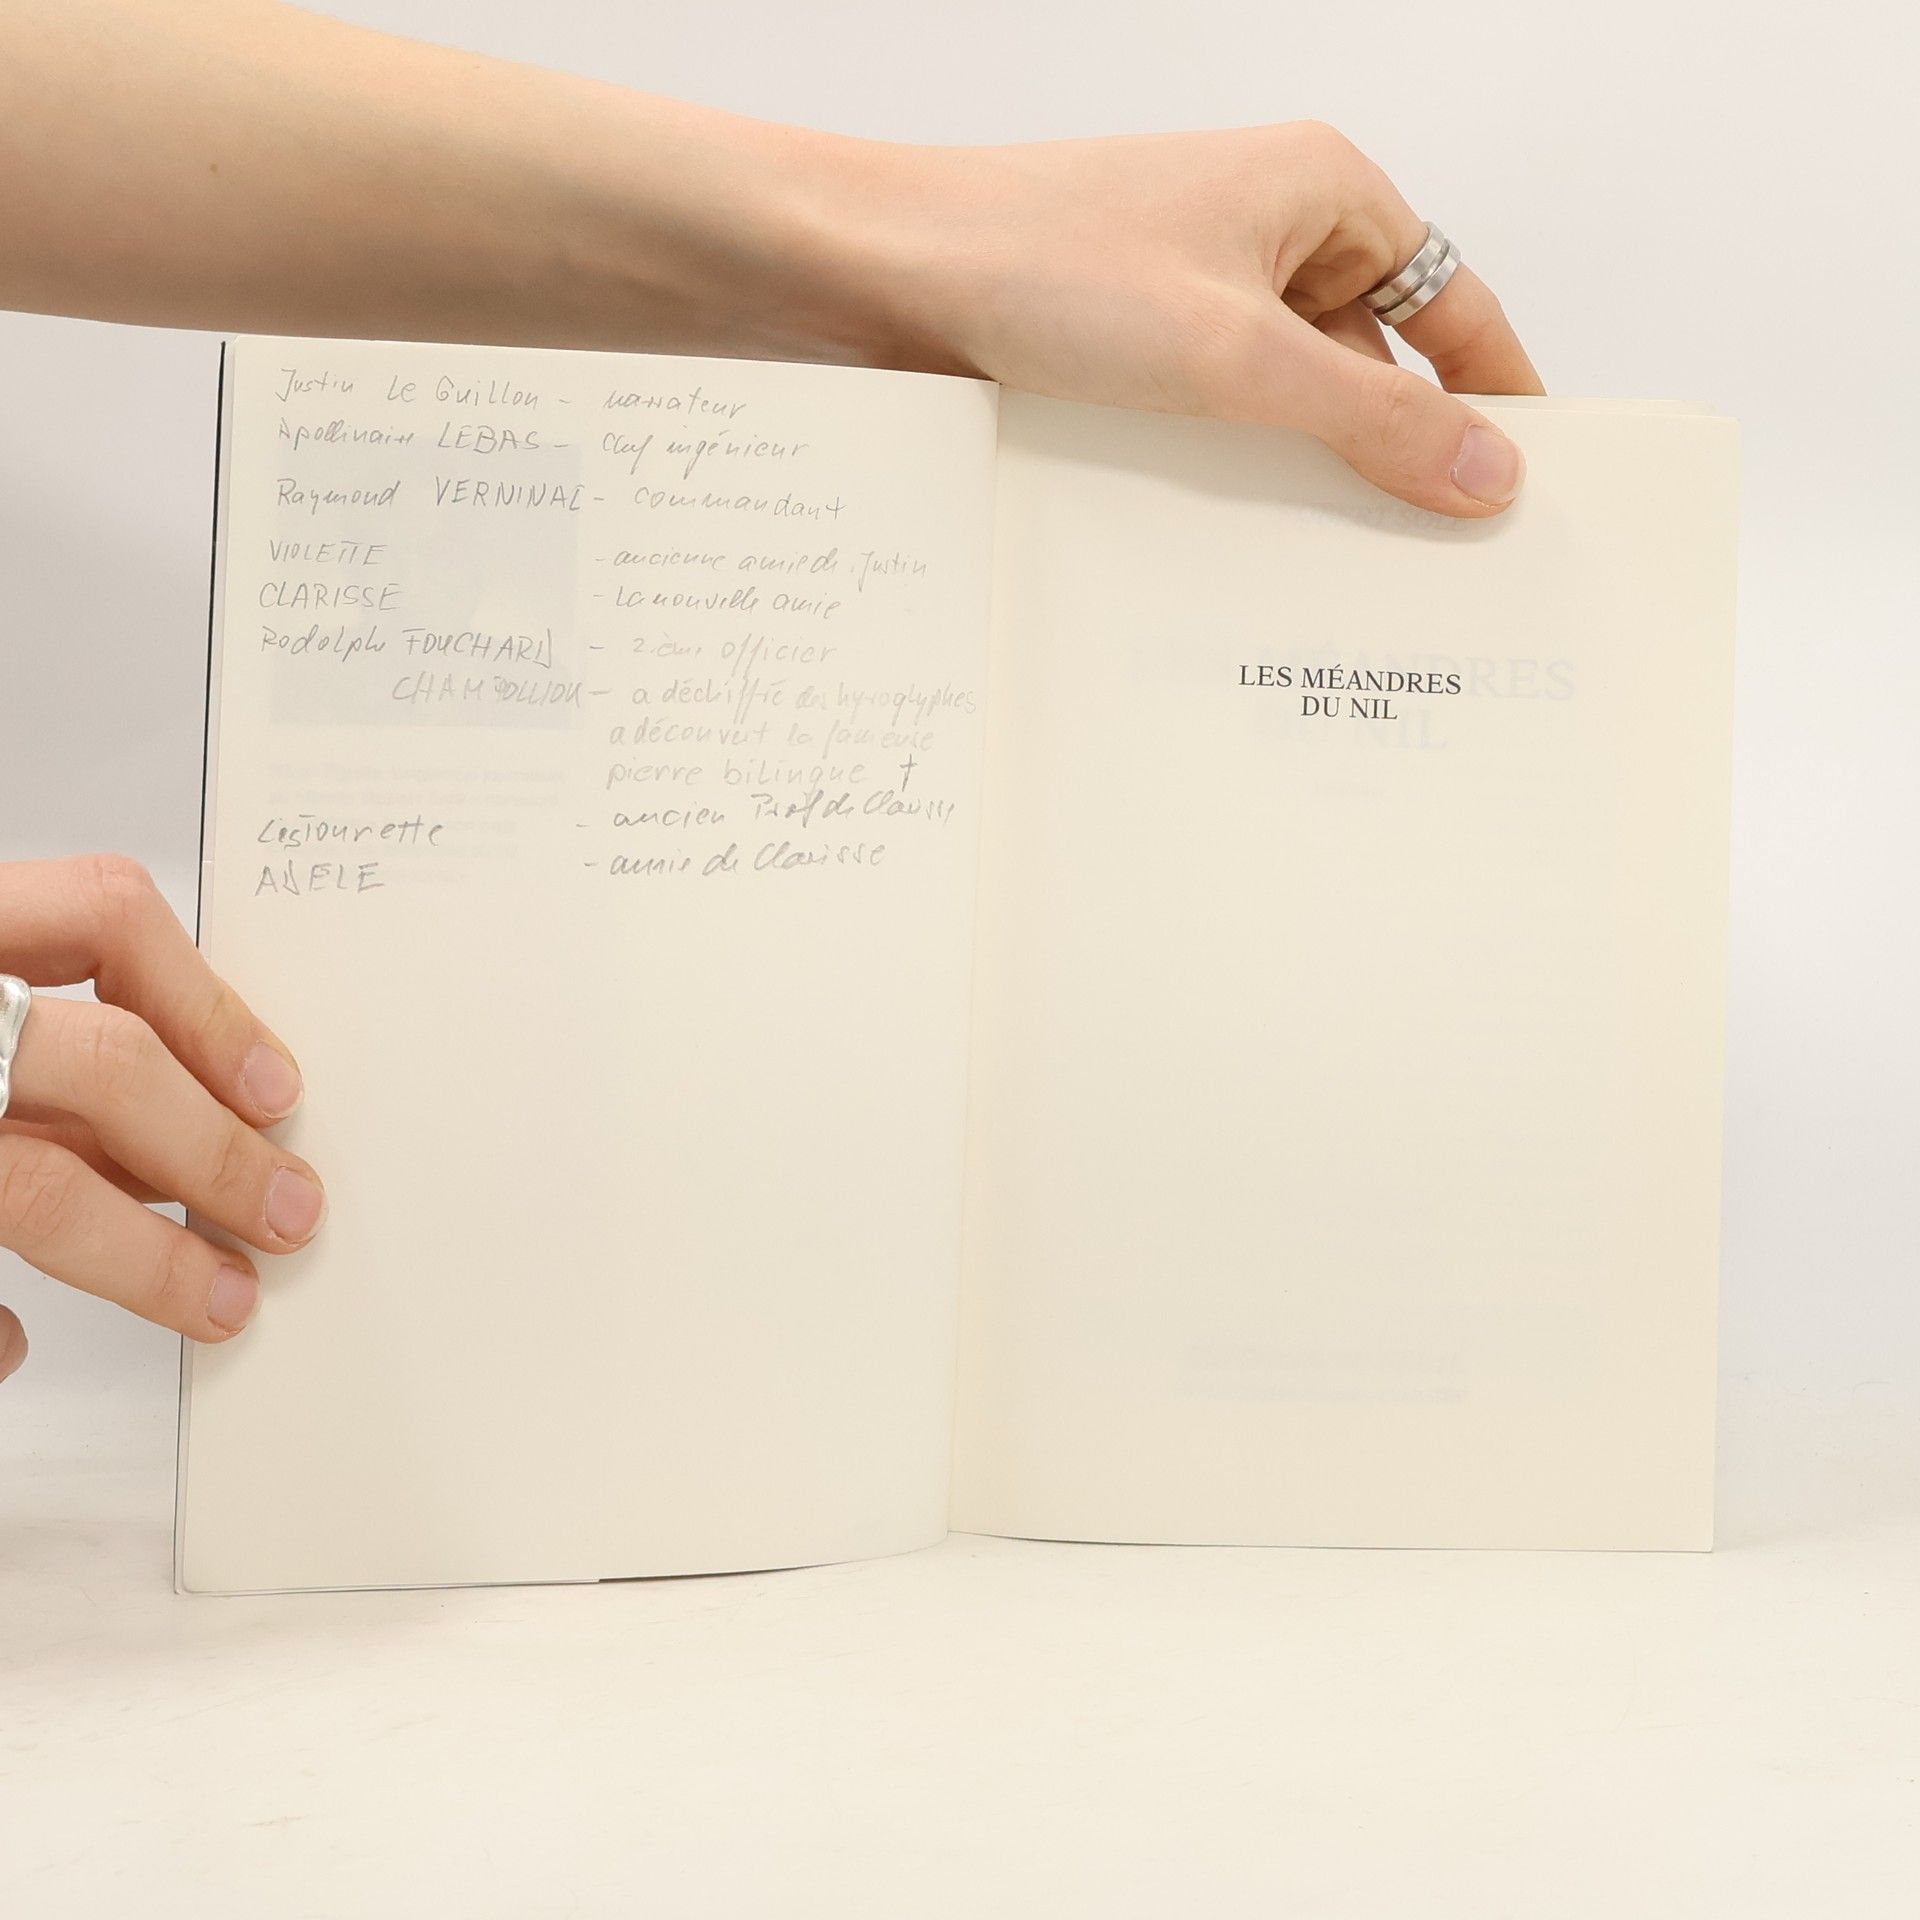 Justin Le Guillon - narrateur
Apollinaire LEBAS - chef ingénieur
Raymond VERNINAC - commandant
VIOLETTE - ancienne amie de Justin
CLARISSE - La nouvelle amie
Rodolphe FOUCHARD - 2.ème officier
CHAMPOLLION - a déchiffré des hyroglyphes
a découvert la fameuse
pierre bilingue †
- ancien Prof de Clarisse
ADELE - amie de Clarisse
LES MÉANDRES
DU NIL